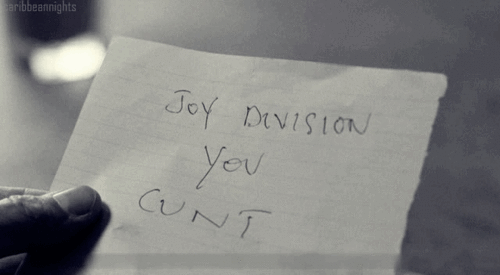 caribbeannights
JOY DIVISION
YOU
CUNT